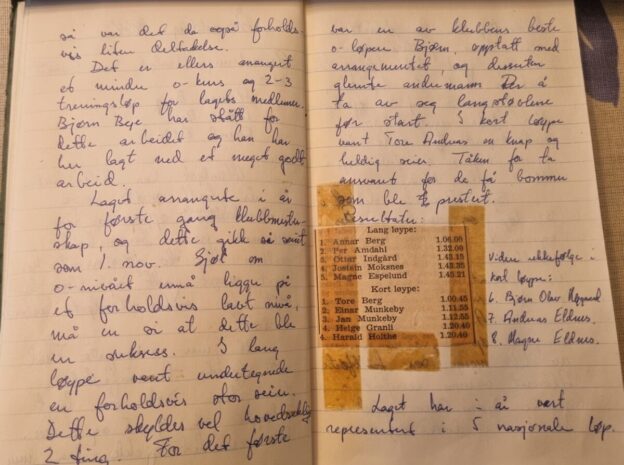 så var det da også forholds-
vis liten deltakelse.
Det er ellers arrangert
et mindre o-kurs og 2-3
treningsløp for lagets medlemmer.
Bjørn Beje har stått for
dette arbeidet og han har
her lagt ned et meget godt
arbeid.
Laget arrangerte i år
for første gang klubbmester-
skap, og dette gikk så seint
som 1. nov. Sjøl om
o-nivået må ligge på
et forholdsvis lavt nivå,
må en si at dette ble
en suksess. I lang
løype vant undertegnede
en forholdsvis stor seier.
Dette skyldes vel hovedsaklig
2 ting. For det første
var en av klubbens beste
o-løpere Bjørn, opptatt med
arrangementet, og dessuten
glemte andremann Per å
ta av seg langstøvlene
før start. I kort løype
vant Tore Andreas en knap og
heldig seier. Tåken får ta
ansvaret for de få bommene
som ble prestert.
Resultater:
Lang løype:
1. Annar Berg 1.06.08
2. Per Amdahl 1.32.00
3. Ottar Indgård 1.43.15
4. Jostein Moksnes 1.43.35
5. Magne Espelund 1.45.21
Kort løype:
1. Tore Berg 1.00.45
2. Einar Munkeby 1.11.55
3. Jan Munkeby 1.12.55
4. Helge Granli 1.20.40
4. Harald Holthe 1.20.40
Videre rekkefølge i
kort løype:
6. Bjørn Olav
7. Andreas Eldnes.
8. Magne Eldnes.
Laget har i år vært
representert i 5 nasjonale løp.